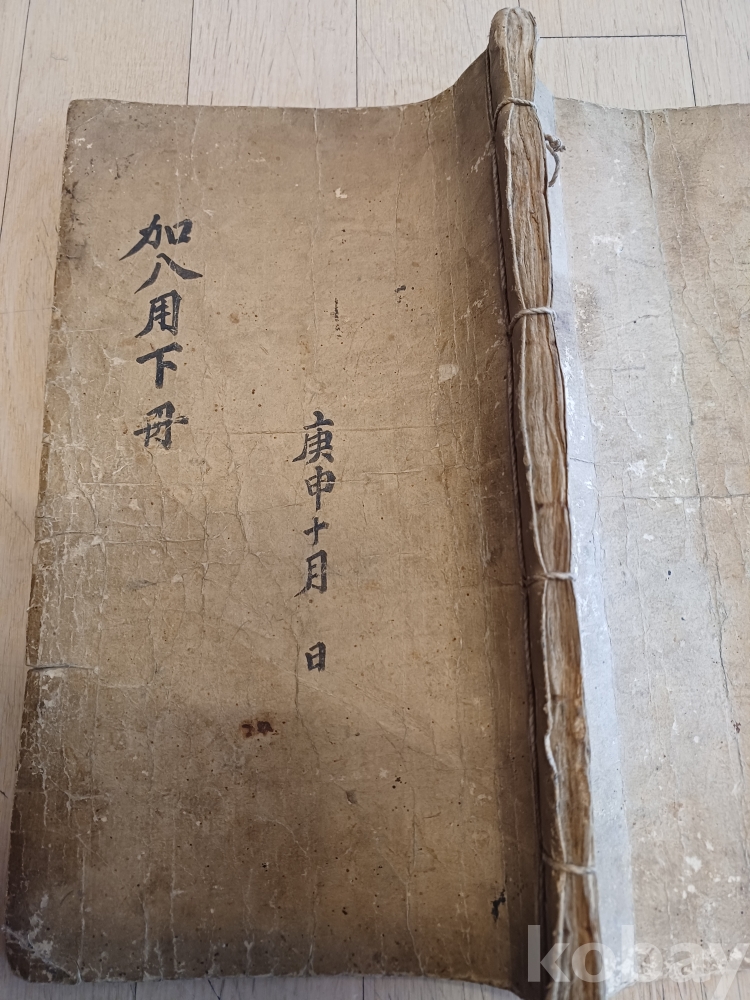 加八用下冊
庚申十月 日
kobay